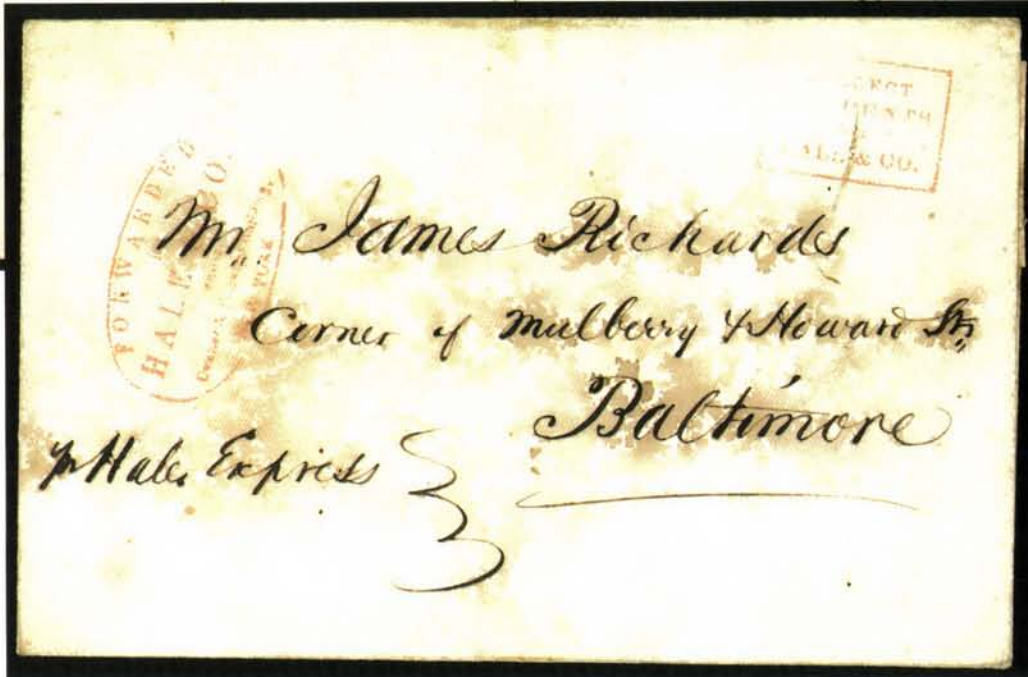 FORWARDED
HALE & CO.
NEW YORK
& CO.
Mr. James Richards
Corner of Mulberry & Howard Sts,
Baltimore
pr Hales Express